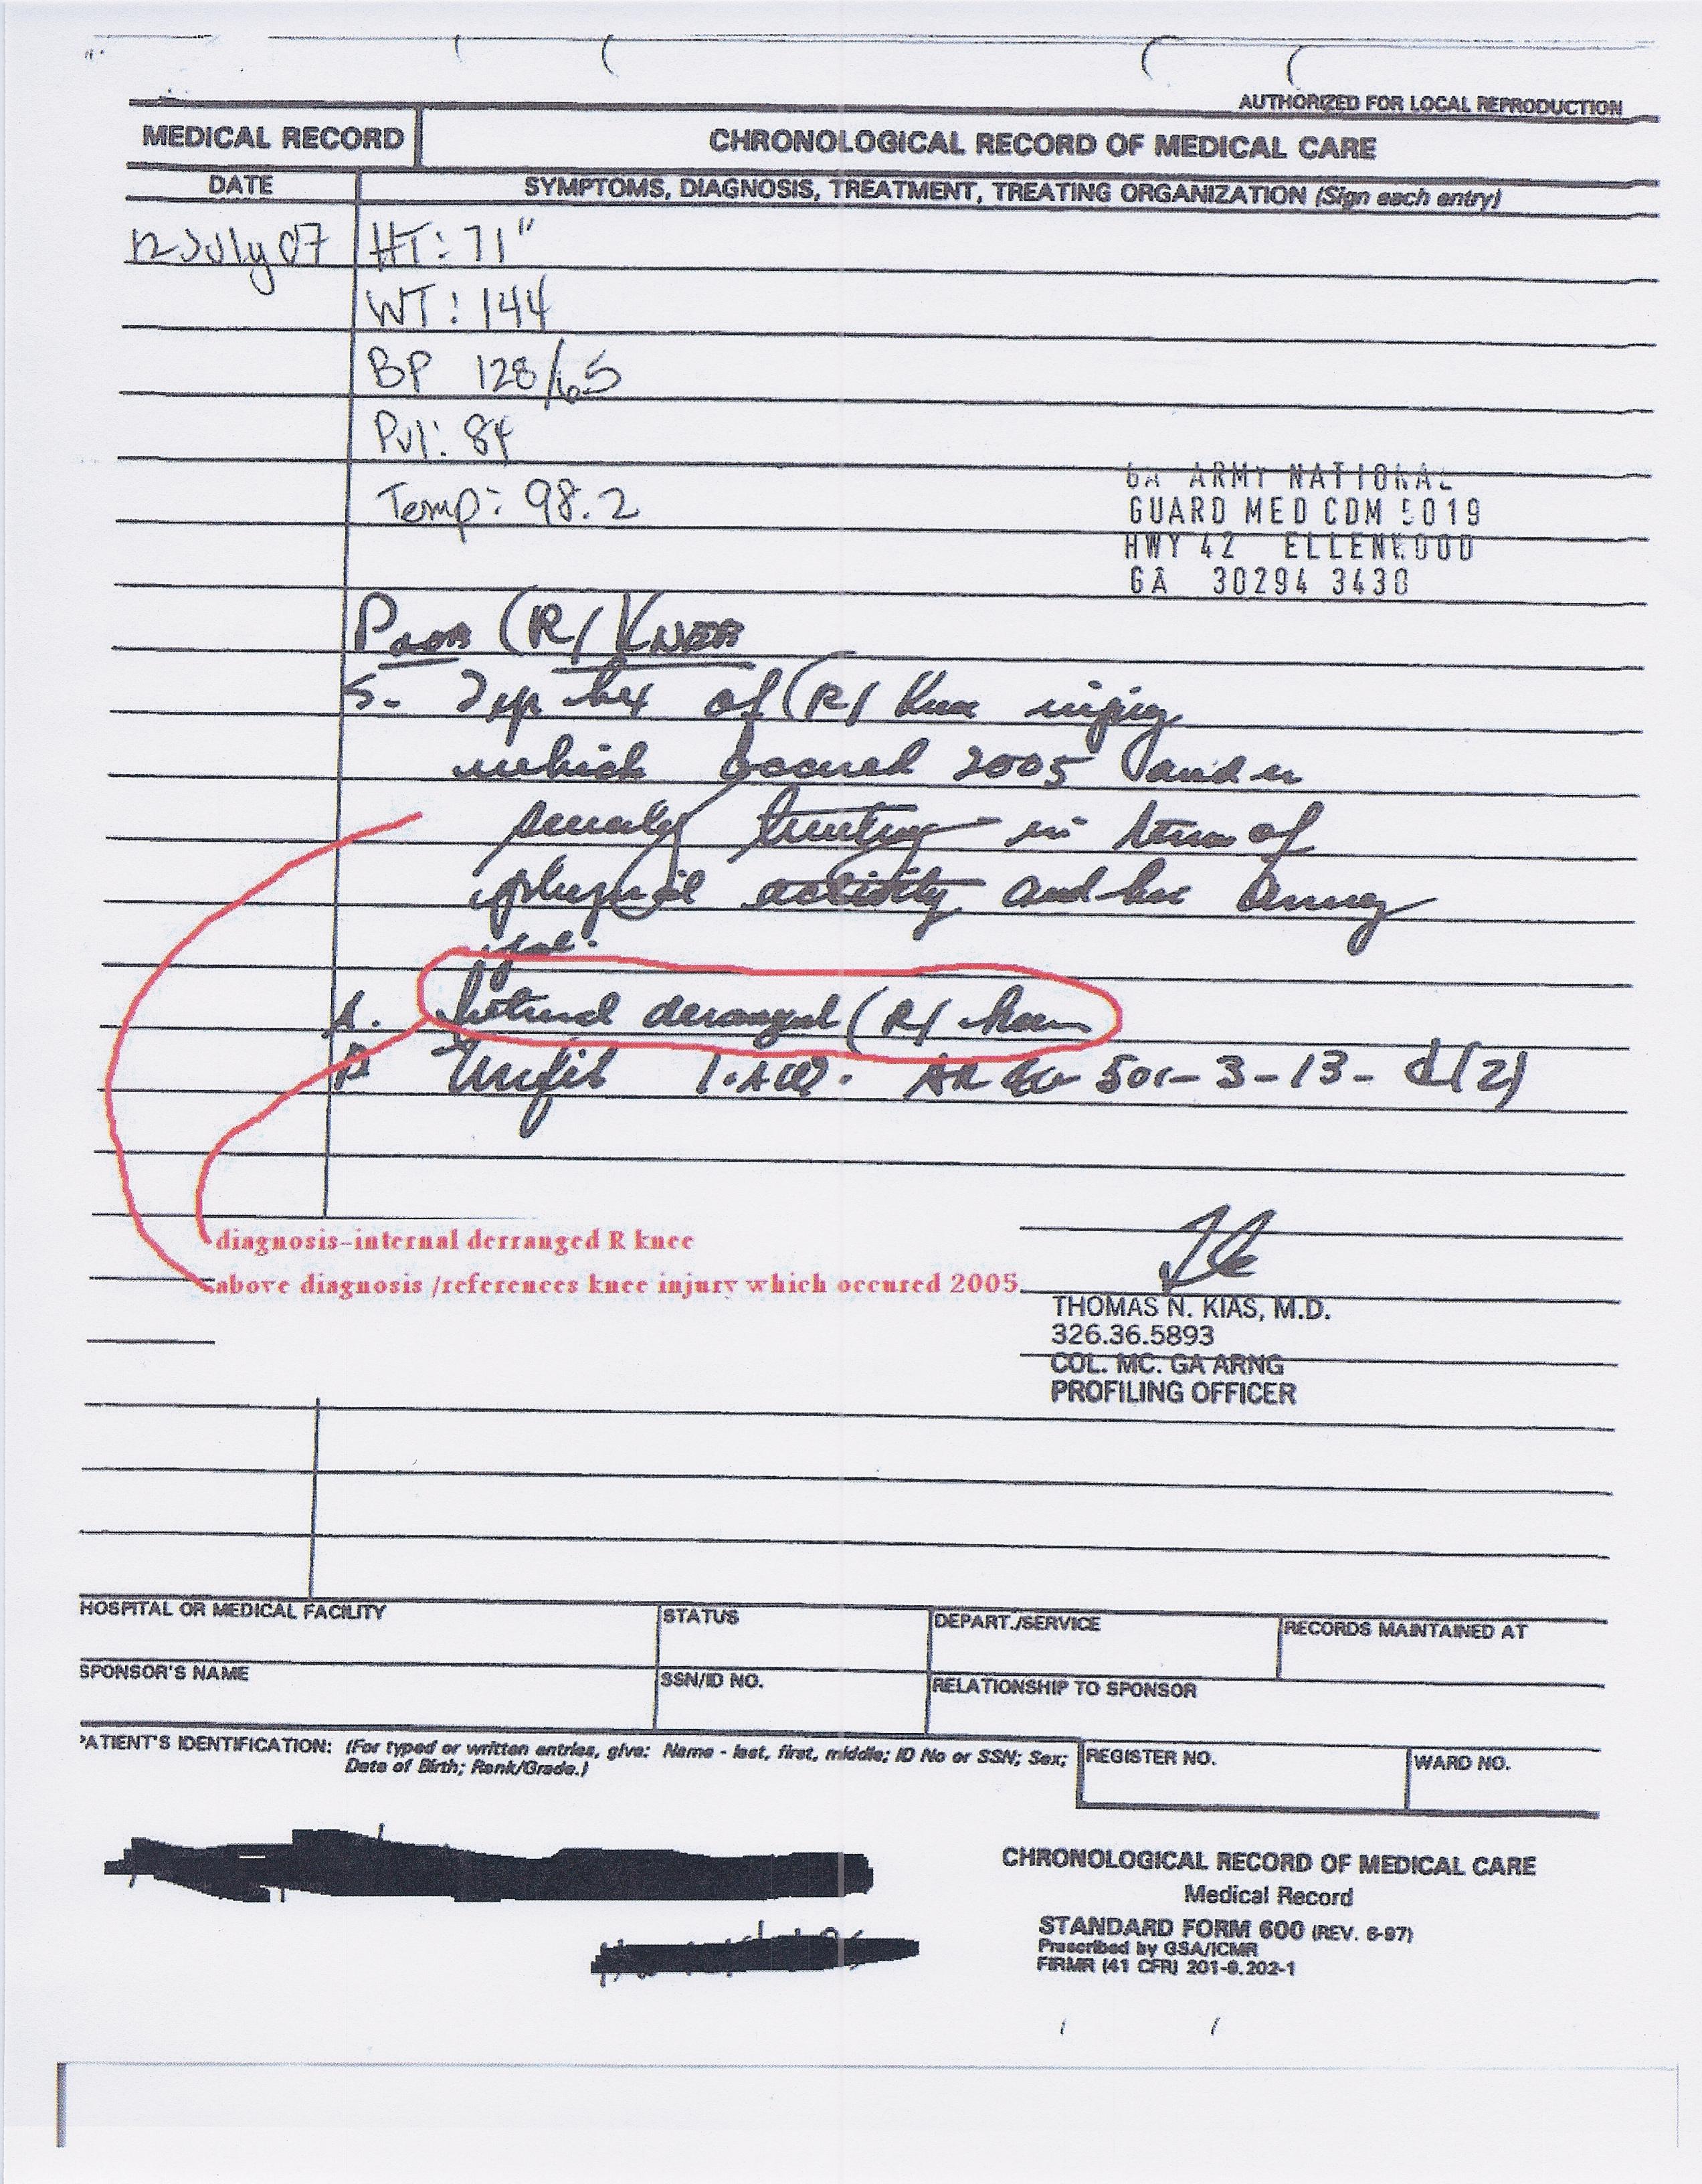 AUTHORIZED FOR LOCAL REPRODUCTION
MEDICAL RECORD
CHRONOLOGICAL RECORD OF MEDICAL CARE
DATE
SYMPTOMS, DIAGNOSIS, TREATMENT, TREATING ORGANIZATION (Sign each entry)
12 July 07 HT: 71"
WT: 144
BP 128/65
Pul: 84
Temp: 98.2
GA ARMY NATIONAL
GUARD MED COM 5019
HWY 42 ELLENWOOD
GA 30294 3430
(R) KNEE
S. 2 yr hx of (R) knee injury
which occured 2005 and is
in terms of
physical activity and his Army
A. Internal deranged (R) knee
P Unfit I.A.W. AR 40-501-3-13-d(2)
diagnosis-internal derranged R knee
above diagnosis /references knee injury which occured 2005.
THOMAS N. KIAS, M.D.
326.36.5893
COL. MC. GA ARNG
PROFILING OFFICER
HOSPITAL OR MEDICAL FACILITY
STATUS
DEPART./SERVICE
RECORDS MAINTAINED AT
SPONSOR'S NAME
SSN/ID NO.
RELATIONSHIP TO SPONSOR
PATIENT'S IDENTIFICATION: (For typed or written entries, give: Name - last, first, middle; ID No or SSN; Sex;
Date of Birth; Rank/Grade.)
REGISTER NO.
WARD NO.
CHRONOLOGICAL RECORD OF MEDICAL CARE
Medical Record
STANDARD FORM 600 (REV. 6-97)
Prescribed by GSA/ICMR
FIRMR (41 CFR) 201-9.202-1